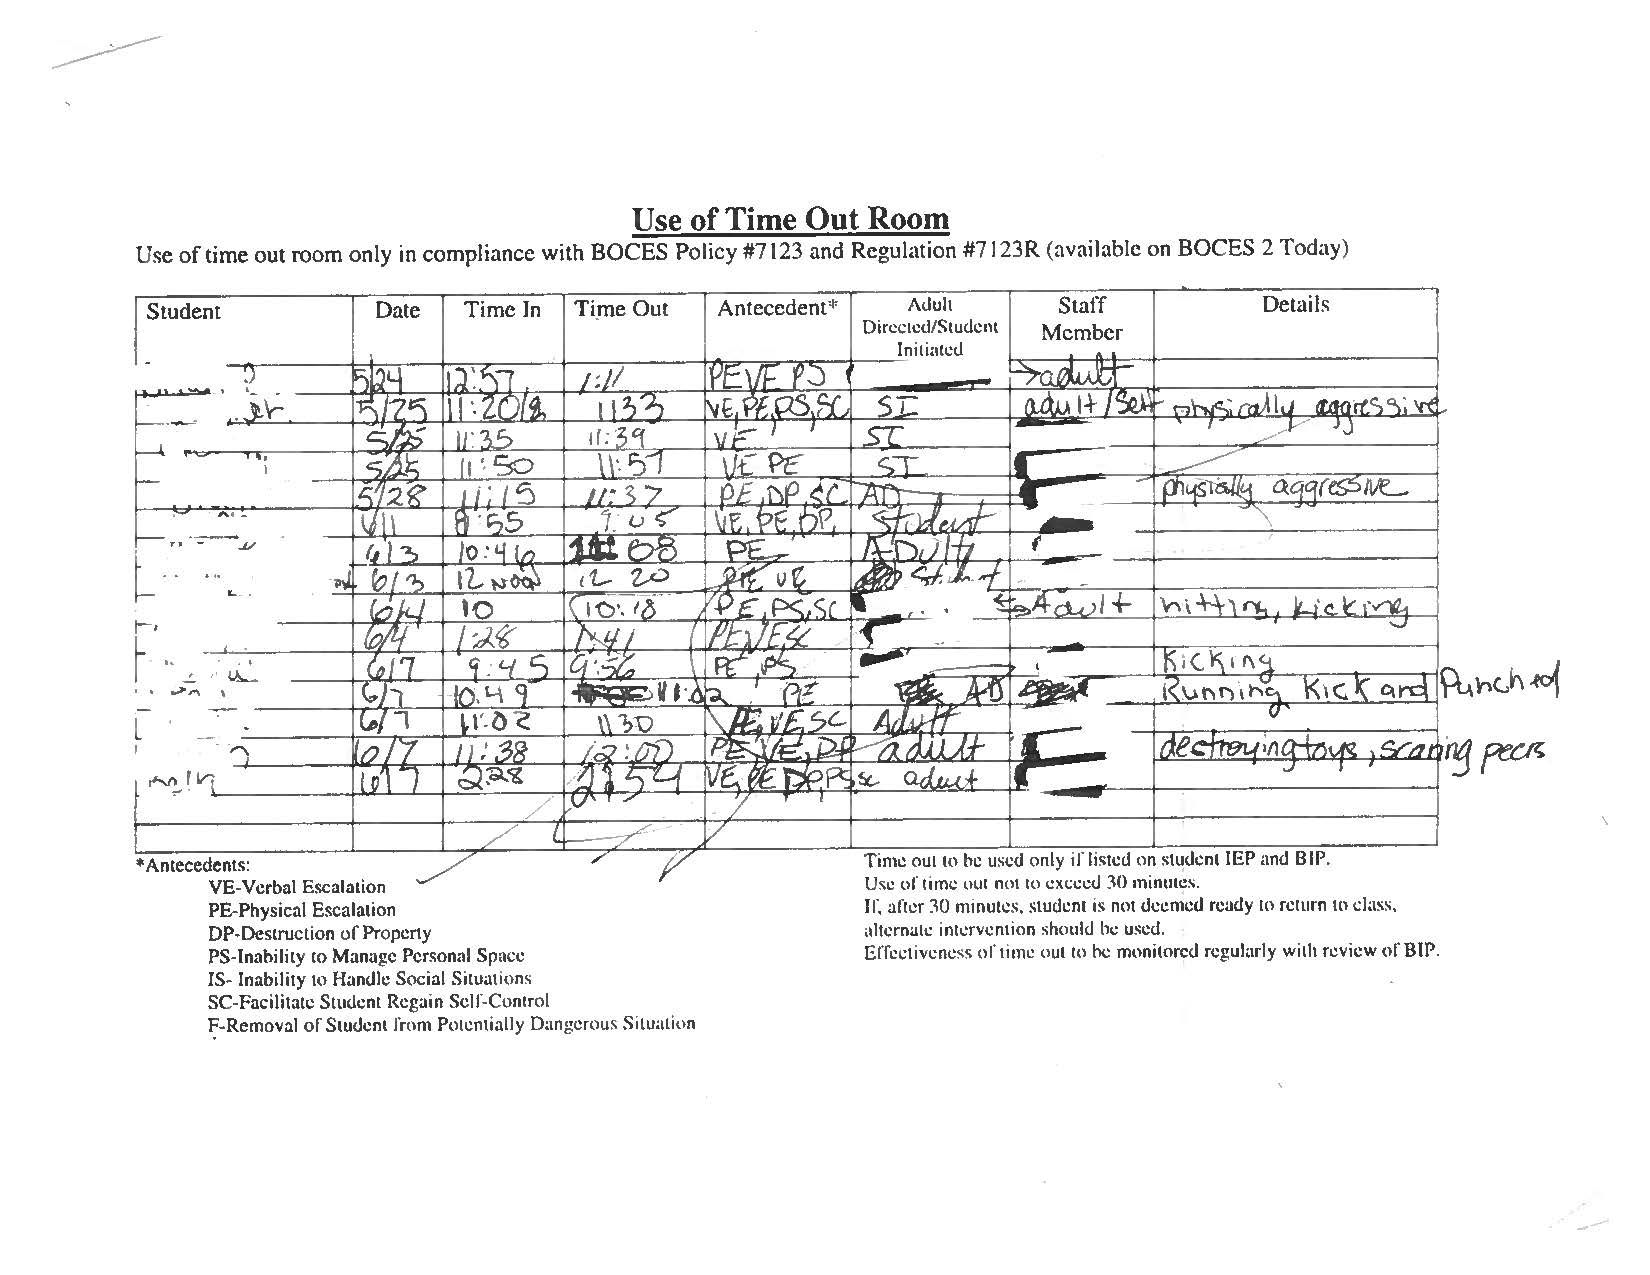 Use of Time Out Room
Use of time out room only in compliance with BOCES Policy #7123 and Regulation #7123R (available on BOCES 2 Today)
Student Date Time In Time Out Antecedent* Adult Directed/Student Initiated Staff Member Details
5/24 12:57 1:11 PE VE PS adult
5/25 11:20 1133 VE, PE, PS, SC SI adult/self physically aggressive
5/25 11:35 11:39 VE SI
5/25 11:50 11:57 VE PE SI
5/28 11:15 11:37 PE, DP, SC AD physically aggressive
8:55 9:05 VE, PE, DP, Student
6/3 10:46 08 PE ADult
6/3 12 NOON 12 20 VE
6/4 10 10:18 PE, PS, SC Adult hitting, kicking
6/4 1:28 1:41
6/7 9:45 9:56 PE, PS Kicking
6/7 10:49 11:02 PE AD Running Kick and Punched
6/7 11:02 1130 PE, VE, SC Adult
6/7 11:38 12:00 PE, VE, DP adult destroying toys, scaring peers
6/7 2:28 2:54 VE, PE, DP, PS, SC adult
*Antecedents:
VE-Verbal Escalation
PE-Physical Escalation
DP-Destruction of Property
PS-Inability to Manage Personal Space
IS- Inability to Handle Social Situations
SC-Facilitate Student Regain Self-Control
F-Removal of Student from Potentially Dangerous Situation
Time out to be used only if listed on student IEP and BIP.
Use of time out not to exceed 30 minutes.
If, after 30 minutes, student is not deemed ready to return to class,
alternate intervention should be used.
Effectiveness of time out to be monitored regularly with review of BIP.